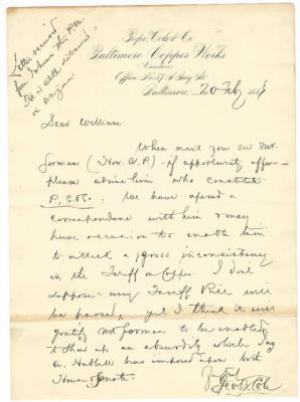 Letter received
from
Pope, Cole & Co.
Baltimore Copper Works
Office No. 57 S. Gay St.
Baltimore, 20
Dear William.
When next you see Mr.
Gorman (Hon. A. P.) if opportunity offer
please advise him who constitute
P. C. & Co. We have opened a
correspondence with him & may
have occasion to enable him
to attack a gross inconsistency
in the Tariff on Copper. I dont
suppose any Tariff Bill will
be passed, yet I think it will
gratify Mr Gorman to be enabled
to show up an absurdity which Jay
A. Hubbell has imposed upon both
House & Senate.
Geo B Cole